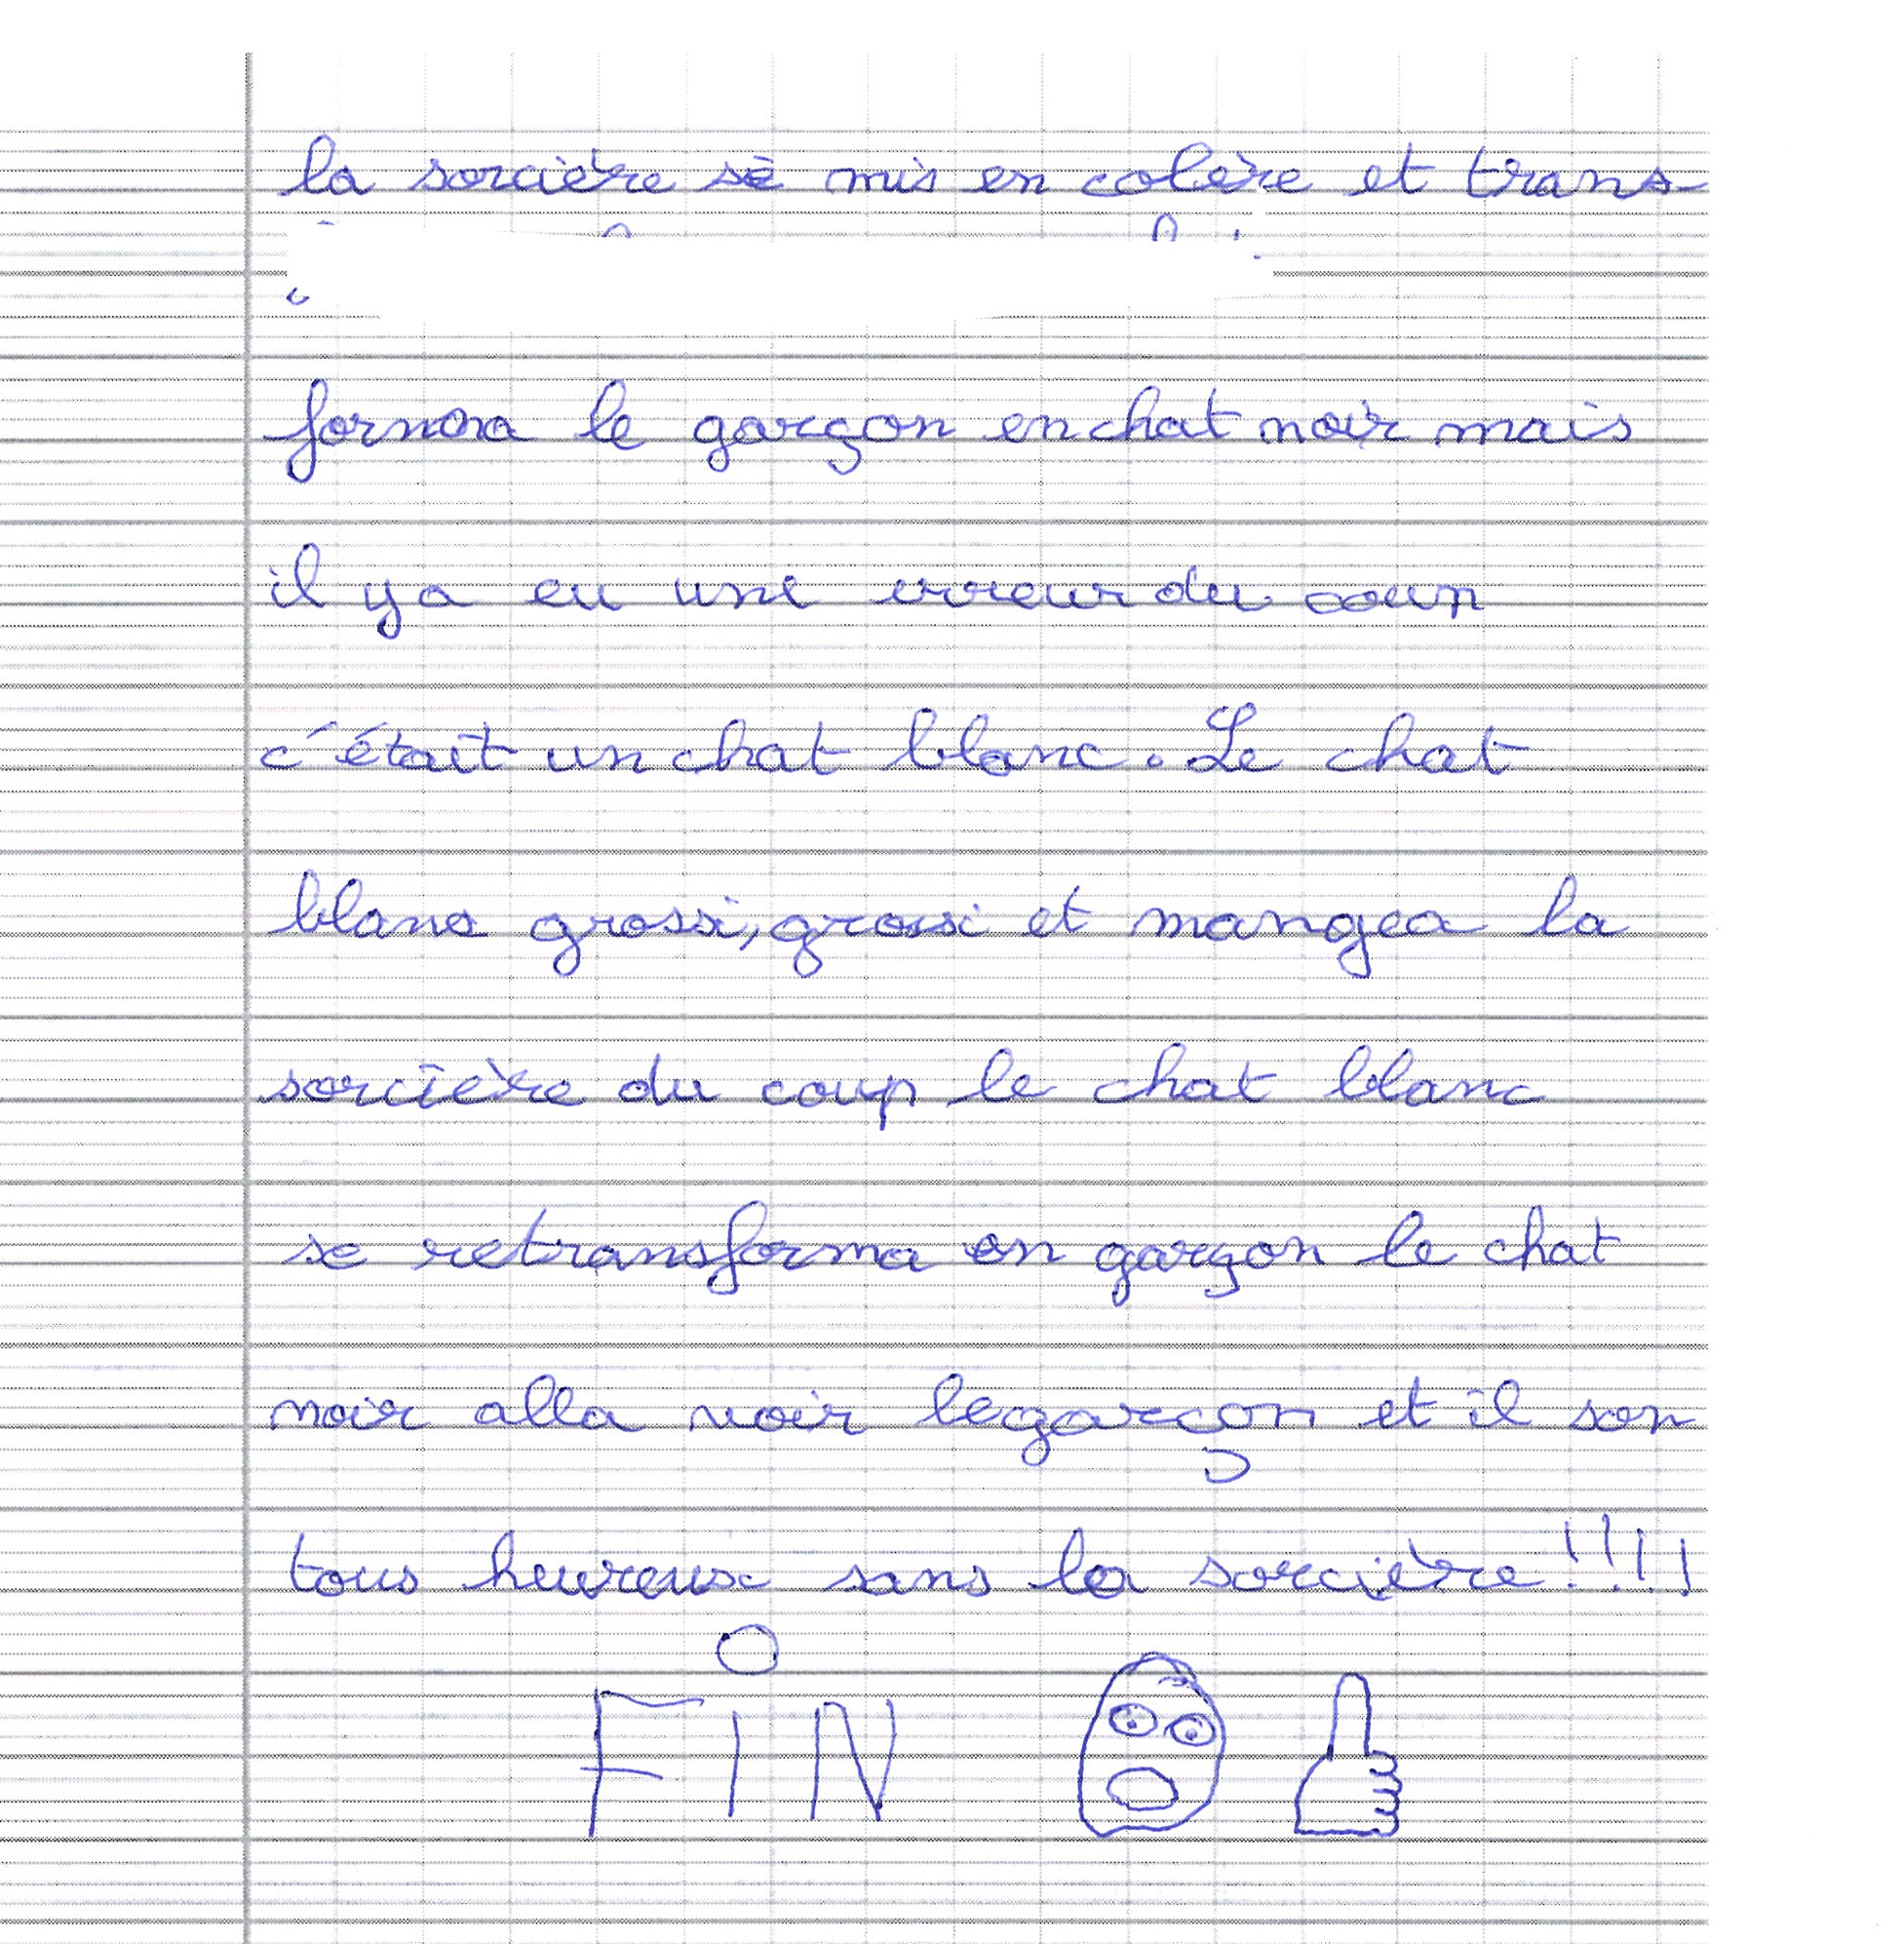 la sorcière se mis en colère et trans-
forma le garçon en chat noir mais
il y a eu une erreur du coup
c'était un chat blanc. Le chat
blanc grossi, grossi et mangea la
sorcière du coup le chat blanc
se retransforma en garçon le chat
noir alla voir le garçon et il son
tous heureux sans la sorcière!!!!
FiN